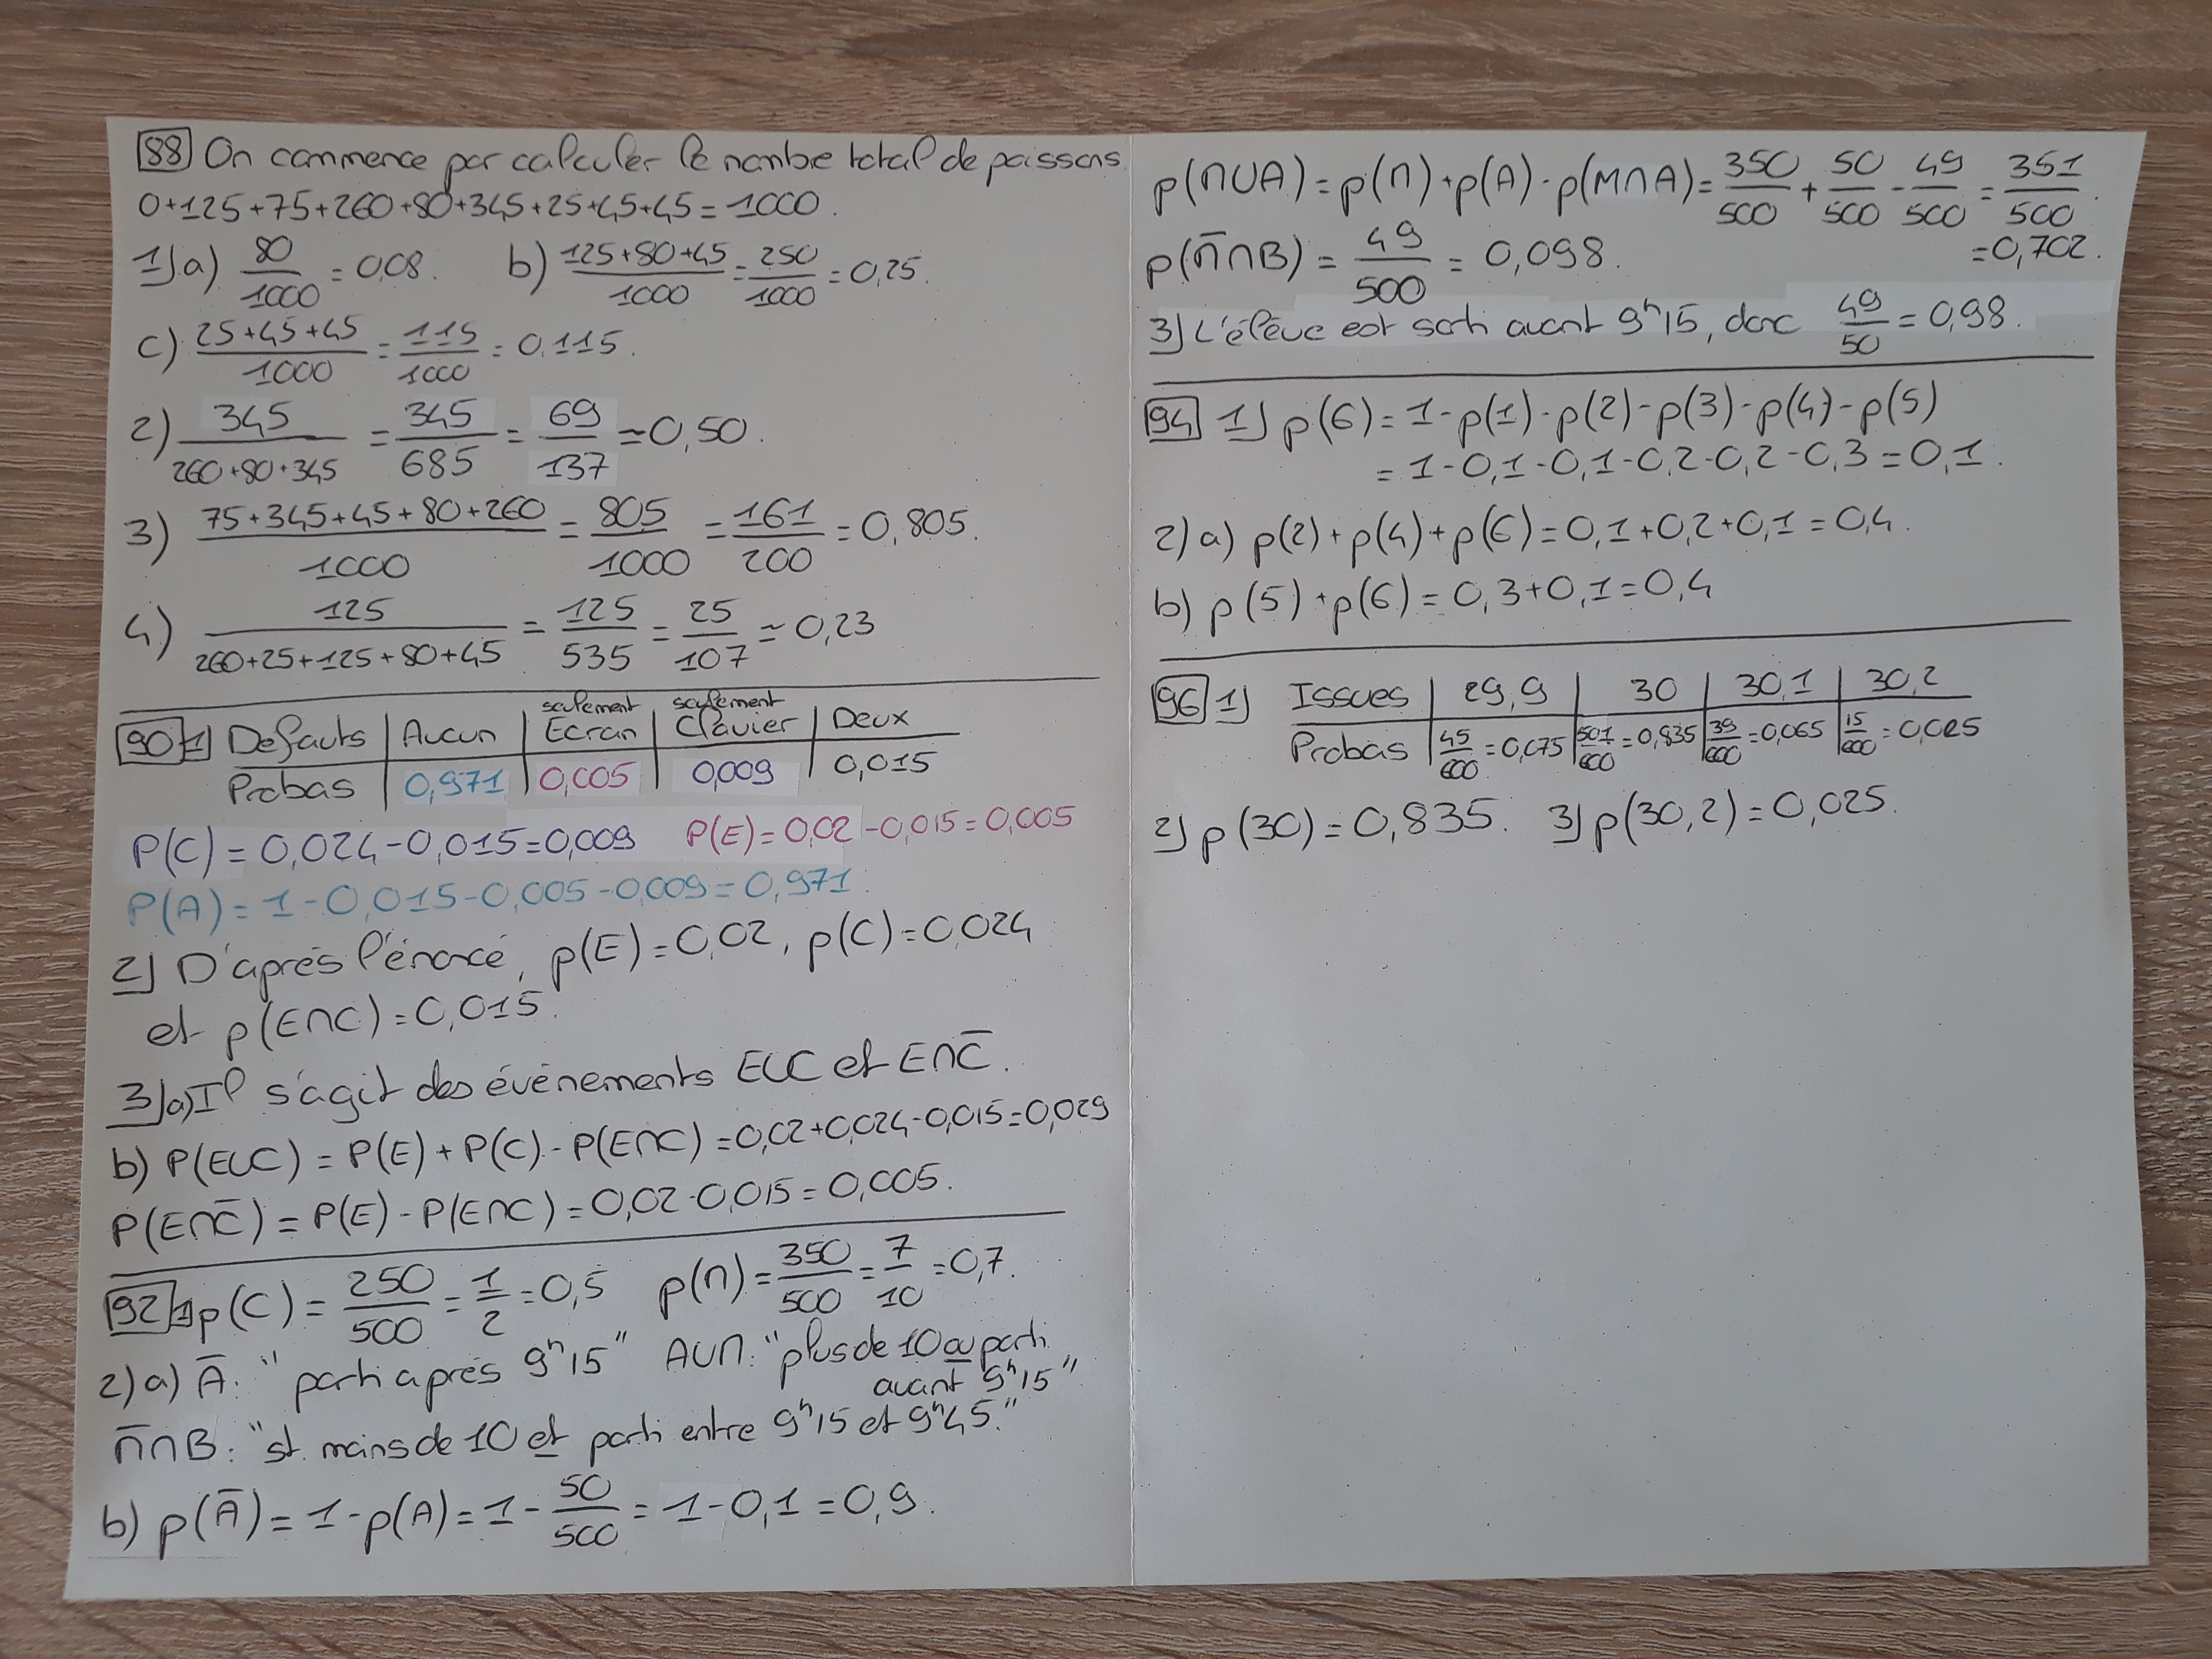 88 On commence par calculer le nombre total de poissons
0+125+75+260+80+345+25+45+45=1000.
1) a) 80/1000 = 0,08. b) (125+80+45)/1000 = 250/1000 = 0,25.
c) (25+45+45)/1000 = 115/1000 = 0,115.
2) 345/(260+80+345) = 345/685 = 69/137 ≃ 0,50.
3) (75+345+45+80+260)/1000 = 805/1000 = 161/200 = 0,805.
4) 125/(260+25+125+80+45) = 125/535 = 25/107 ≃ 0,23
90 1) Défauts | Aucun | seulement Ecran | seulement Clavier | Deux
Probas | 0,971 | 0,005 | 0,009 | 0,015
P(C) = 0,024-0,015=0,009 P(E)=0,02-0,015=0,005
P(A) = 1-0,015-0,005-0,009=0,971.
2) D'après l'énoncé, p(E)=0,02, p(C)=0,024
et p(E∩C)=0,015.
3) a) Il s'agit des événements E∪C et E∩C̅.
b) P(E∪C) = P(E)+P(C)-P(E∩C)=0,02+0,024-0,015=0,029
P(E∩C̅) = P(E)-P(E∩C)=0,02-0,015=0,005.
92 1) p(C) = 250/500 = 1/2 = 0,5 p(M) = 350/500 = 7/10 = 0,7.
2) a) A̅: "parti après 9h15" A∪M: "plus de 10 ou parti
avant 9h15"
M̅∩B: "st. moins de 10 et parti entre 9h15 et 9h45."
b) p(A̅) = 1-p(A) = 1 - 50/500 = 1-0,1 = 0,9.
p(M∪A) = p(M)+p(A)-p(M∩A) = 350/500 + 50/500 - 49/500 = 351/500.
=0,702.
p(M̅∩B) = 49/500 = 0,098.
3) L'élève est sorti avant 9h15, donc 49/50 = 0,98.
94 1) p(6) = 1-p(1)-p(2)-p(3)-p(4)-p(5)
= 1-0,1-0,1-0,2-0,2-0,3=0,1.
2) a) p(2)+p(4)+p(6)=0,1+0,2+0,1=0,4.
b) p(5)+p(6)=0,3+0,1=0,4
96 1) Issues | 29,9 | 30 | 30,1 | 30,2
Probas | 45/600 = 0,075 | 501/600 = 0,835 | 39/600 = 0,065 | 15/600 = 0,025
2) p(30)=0,835. 3) p(30,2)=0,025.